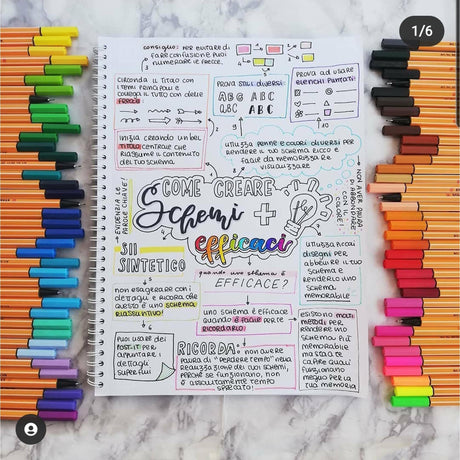 1/6
consiglio: PER EVITARE DI
FARE CONFUSIONE PUOI
NUMERARE LE FRECCE.
CIRCONDA IL TITOLO CON
I TEMI PRINCIPALI E
COLLEGA IL TUTTO CON DELLE
FRECCE
PROVA STILI DIVERSI:
ABG ABC
ABC ABC
PROVA AD USARE
ELENCHI PUNTATI
INIZIA CREANDO UN BEL
TITOLO CENTRALE CHE
RIASSUME IL CONTENUTO
DEL TUO SCHEMA
UTILIZZA PENNE E COLORI DIVERSI PER
RENDERE IL TUO SCHEMA RICCO E
FACILE DA MEMORIZZARE E
VISUALIZZARE
EVIDENZIA LE
PAROLE CHIAVE!
NON AVER PAURA
DI ABBONDARE
CON IL
COLORE!
COME CREARE
Schemi +
efficaci
SII
SINTETICO
NON ESAGERARE CON I
DETTAGLI E RICORDA CHE
QUESTO È UNO SCHEMA
RIASSUNTIVO!
PUOI USARE DEI
POST-IT PER
APPUNTARE I
DETTAGLI
SUPERFLUI
quando uno schema è
EFFICACE?
UNO SCHEMA È EFFICACE
QUANDO È FACILE DA
RICORDARLO
UTILIZZA RICCHI
DISEGNI PER
ABBELLIRE IL TUO
SCHEMA E
RENDERLO UNO
SCHEMA
MEMORABILE
RICORDA: NON AVERE
PAURA DI "PERDERE TEMPO" NELLA
REALIZZAZIONE DEI TUOI SCHEMI,
PERCHÉ SE FUNZIONANO, NON
È ASSOLUTAMENTE TEMPO
SPRECATO!
ESISTONO MOLTI
METODI PER
RENDERE UNO
SCHEMA PIÙ
MEMORABILE
MA STA A TE
CAPIRE QUALI
FUNZIONANO
MEGLIO PER LA
TUA MEMORIA